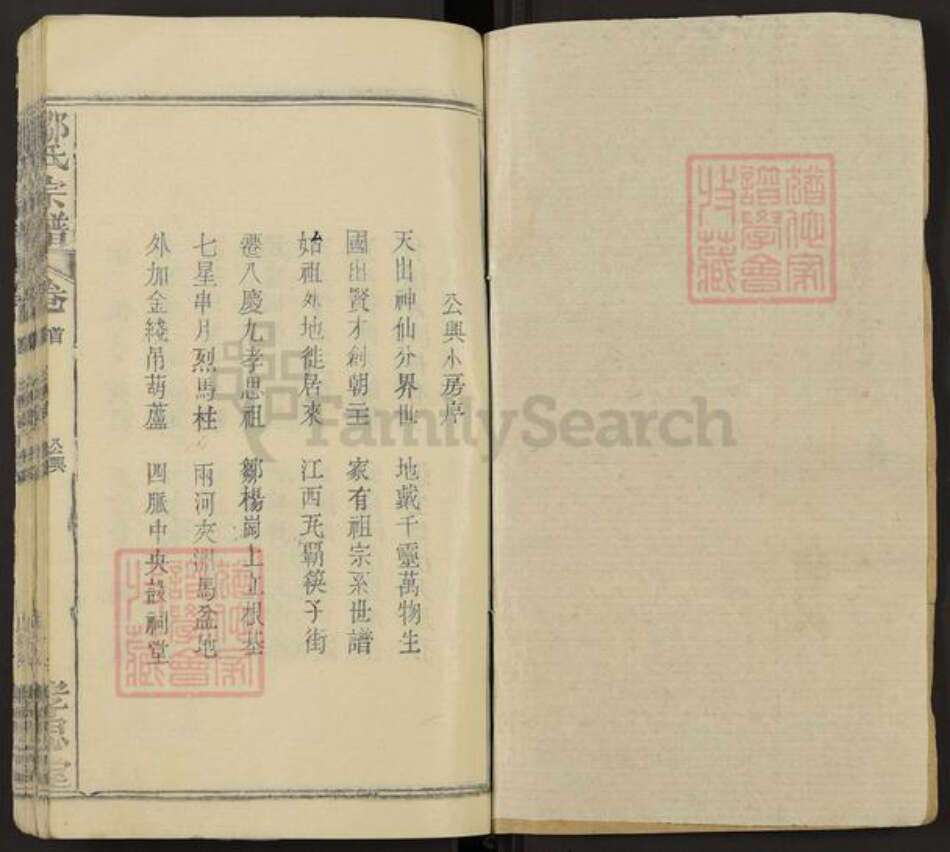 公興小房序
天出神仙分界世 地戴千靈萬物生
國出賢才創朝王 家有祖宗系世譜
始祖外地徙居來 江西瓦覇筷子街
遷八慶九孝思祖 鄒楊崗上立根基
七星串月烈馬柱 兩河夾洲馬盆地
外加金綫吊葫蘆 四脈中央設祠堂
鄒氏宗譜
卷首
公興
孝思堂
FamilySearch